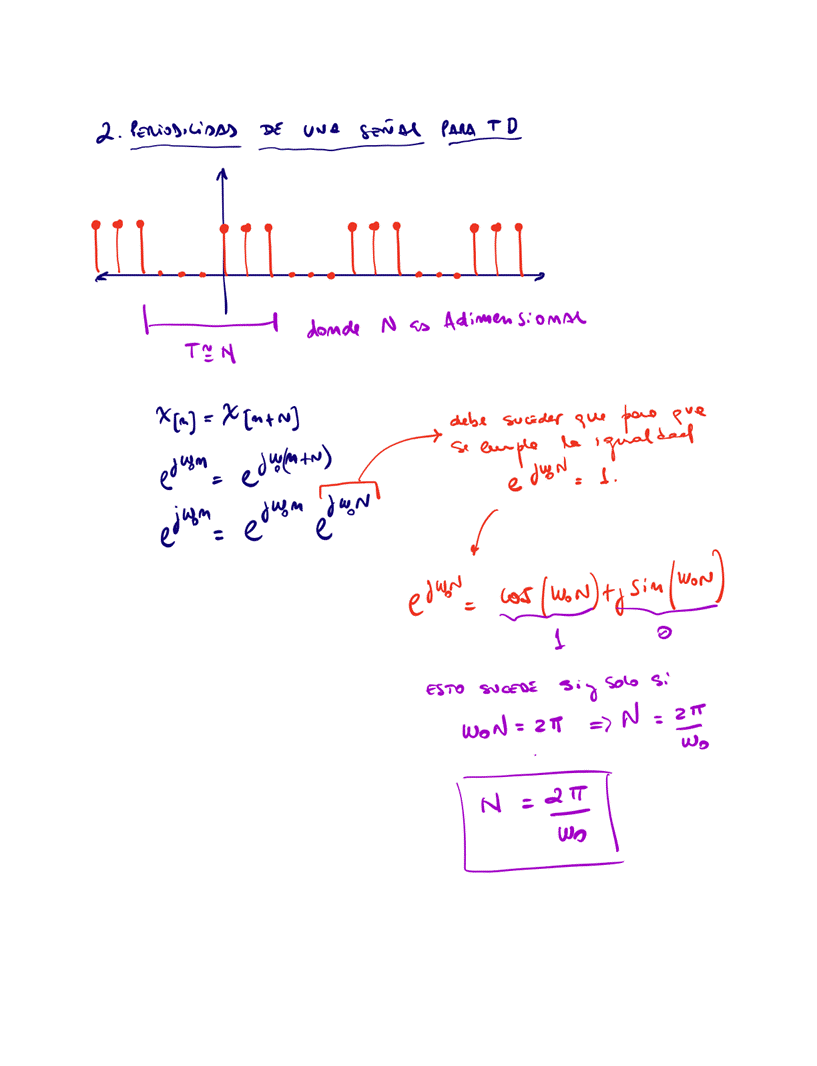 2. PERIODICIDAD DE UNA SEÑAL PARA TD
T ≅ N
donde N es Adimensional
x[n] = x[n+N]
e^{jω₀n} = e^{jω₀(n+N)}
e^{jω₀n} = e^{jω₀n} e^{jω₀N}
debe suceder que para que
se cumpla la igualdad
e^{jω₀N} = 1.
e^{jω₀N} = cos(ω₀N) + j sin(ω₀N)
1 0
ESTO SUCEDE si y solo si
ω₀N = 2π => N = 2π/ω₀
N = 2π/ω₀